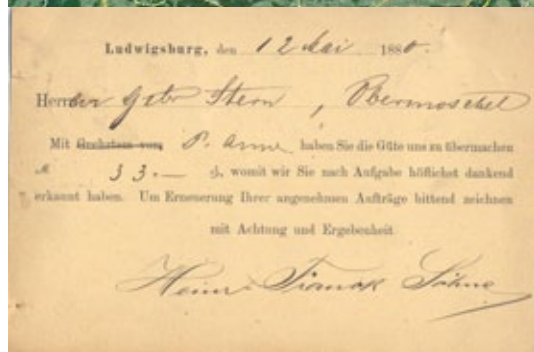 Ludwigsburg, den 12 Mai 1880.
Herren Gebr Stern, Obermoschel
Mit Geehrtem vom P. Anw. haben Sie die Güte uns zu übermachen
M 33.— ₰, womit wir Sie nach Aufgabe höflichst dankend
erkannt haben. Um Erneuerung Ihrer angenehmen Aufträge bittend zeichnen
mit Achtung und Ergebenheit
Heinr Franck Söhne